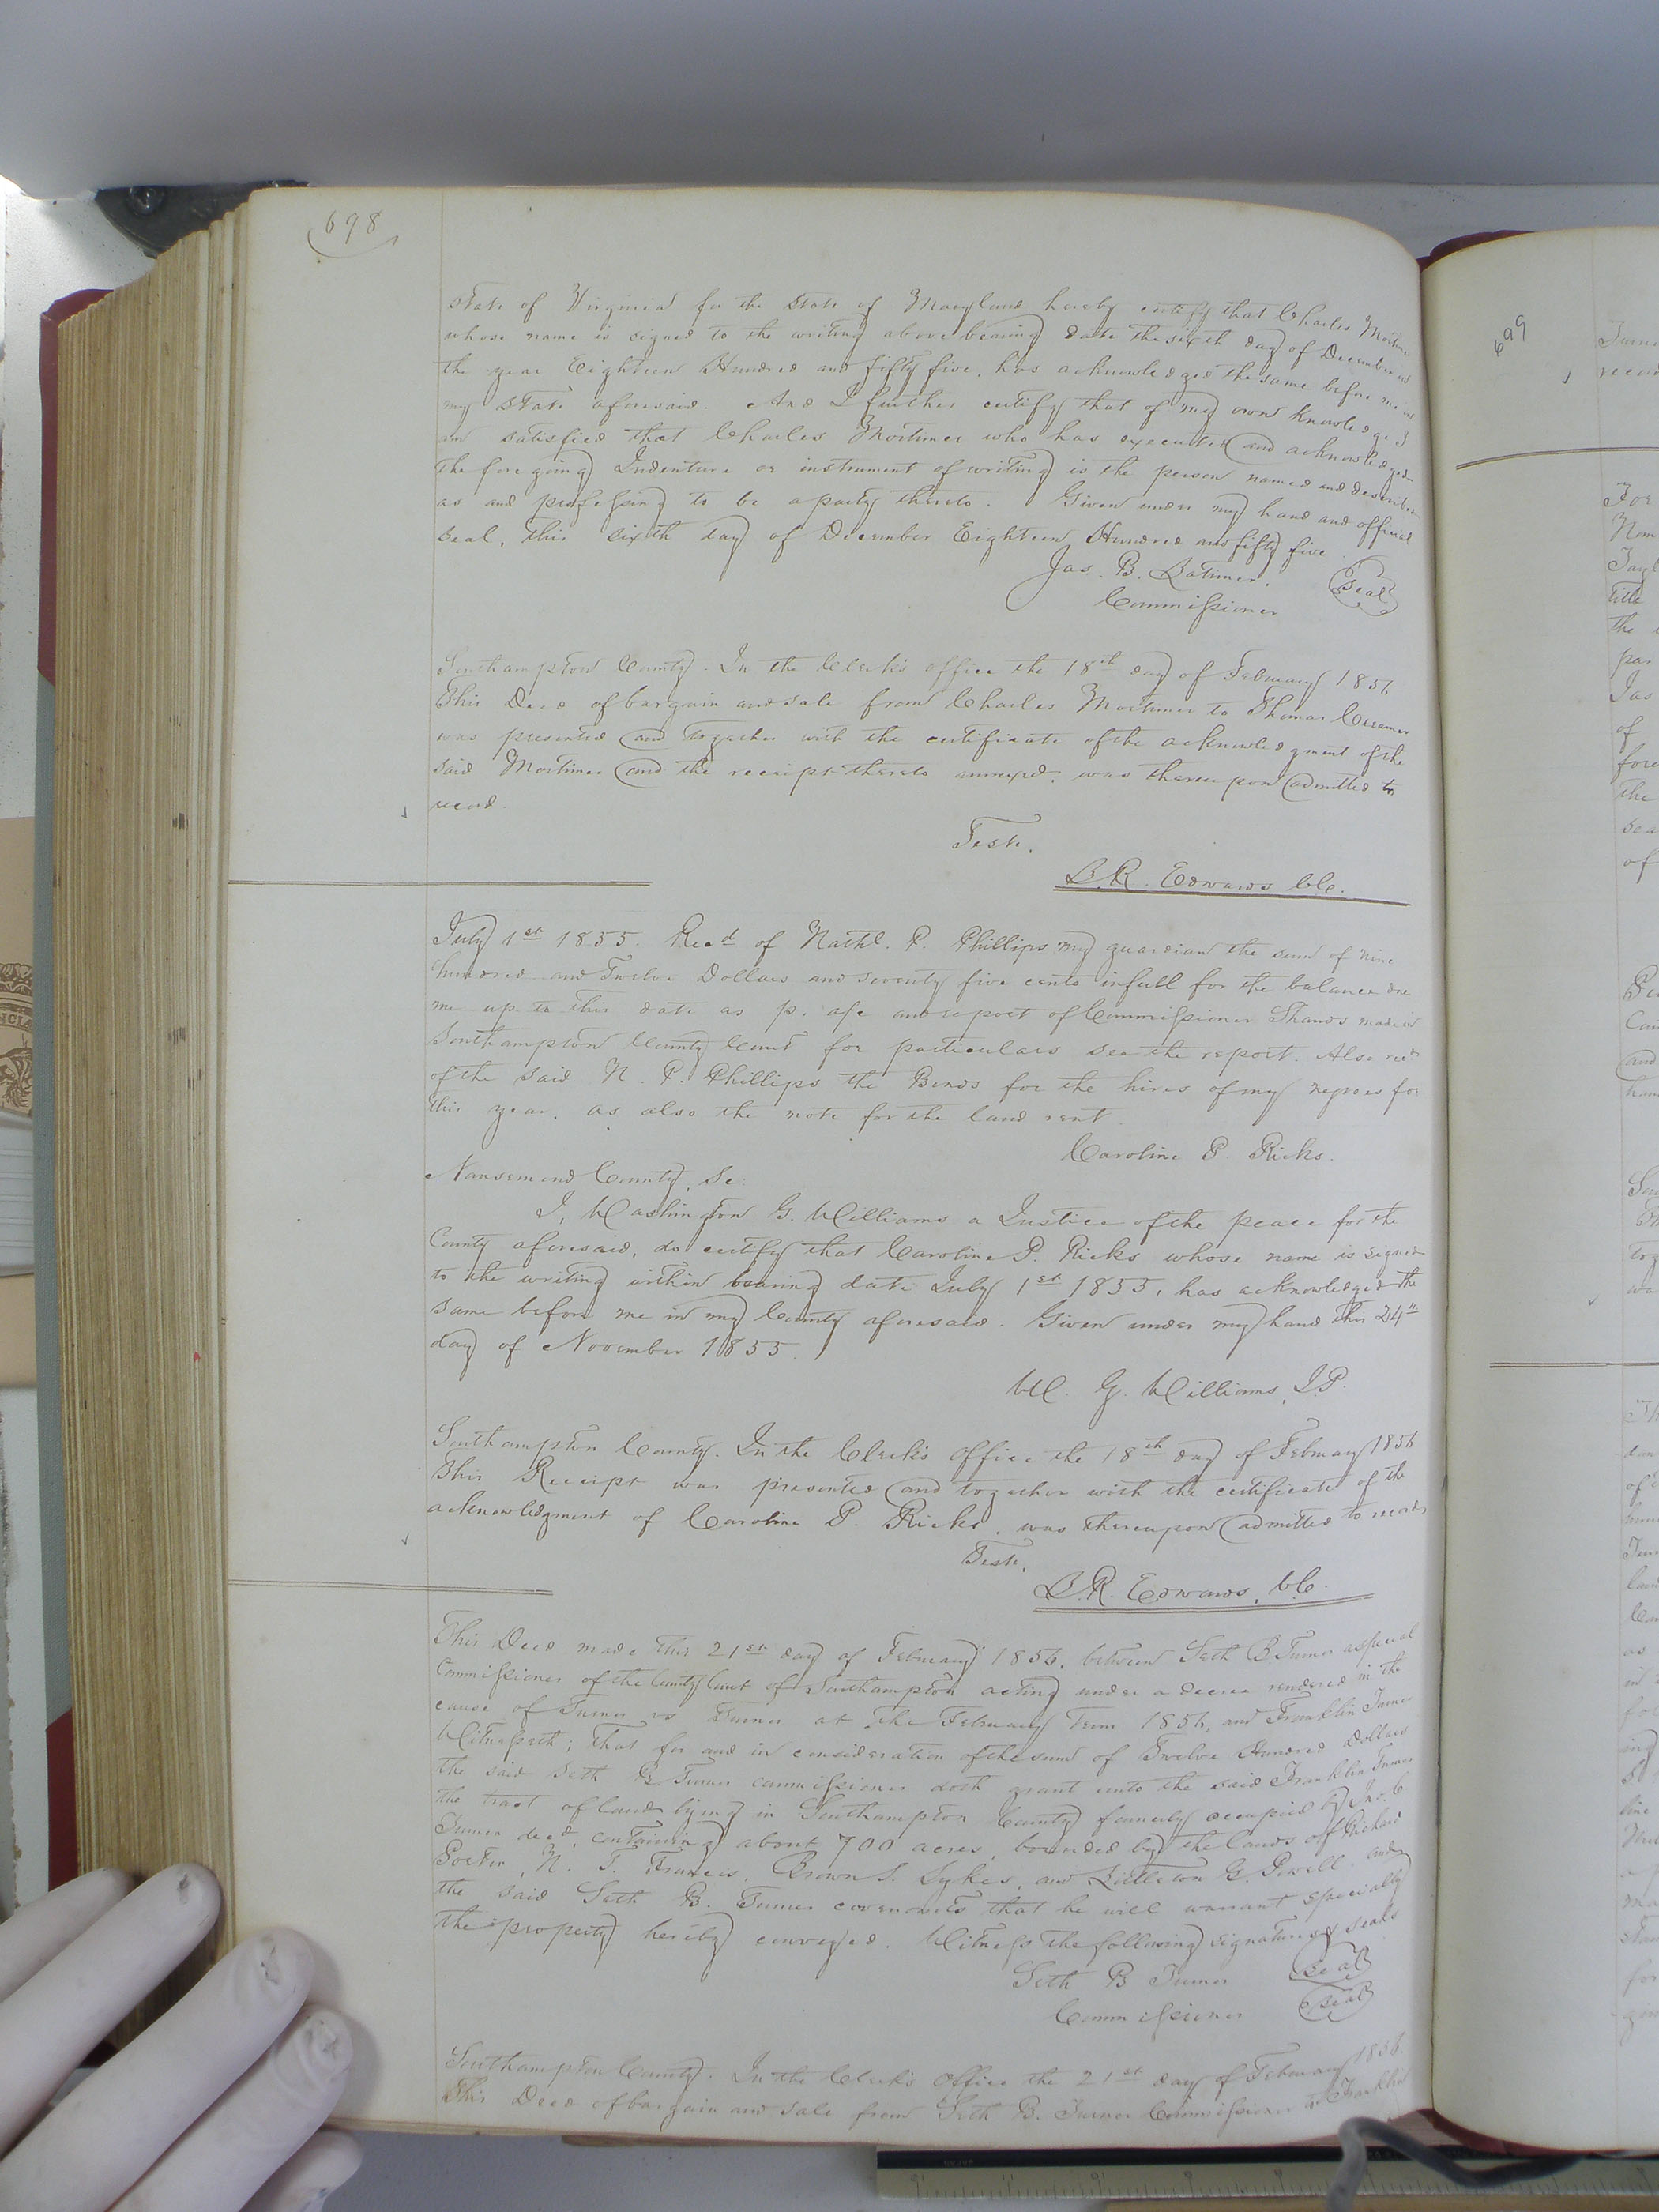 698
State of Virginia for the State of Maryland hereby certify that Charles Mortimer
whose name is signed to the writing above bearing date the sixth day of December in
the year Eighteen Hundred and fifty five, has acknowledged the same before me in
my State aforesaid. And I further certify that of my own knowledge I
am satisfied that Charles Mortimer who has executed and acknowledged
the foregoing Indenture or instrument of writing is the person named and described
as and professing to be a party thereto. Given under my hand and official
seal, this sixth day of December Eighteen Hundred and fifty five
Jas. B. Latimer. Seal
Commissioner
Southampton County. In the Clerk's office the 18th day of February 1856
This Deed of bargain and sale from Charles Mortimer to Thomas
was presented and together with the certificate of the acknowledgment of the
said Mortimer and the receipt thereto annexed, was thereupon admitted to
record.
Teste.
L. R. Edwards CC.
July 1st 1855. Recd of Nathl. P. Phillips my guardian the sum of nine
hundred and Twelve Dollars and seventy five cents in full for the balance due
me up to this date as p. a/c and report of Commissioner Shands made in
Southampton County Court for particulars see the report. Also recd
of the said N. P. Phillips the Bonds for the hires of my negroes for
this year, as also the note for the land rent.
Caroline P. Ricks.
Nansemond County, Sc:
I, Washington G. Williams a Justice of the peace for the
County aforesaid, do certify that Caroline P. Ricks whose name is signed
to the writing within bearing date July 1st 1855, has acknowledged the
same before me in my County aforesaid. Given under my hand this 24th
day of November 1855.
W. G. Williams, J.P.
Southampton County. In the Clerk's Office the 18th day of February 1856
This Receipt was presented and together with the certificate of the
acknowledgment of Caroline P. Ricks, was thereupon admitted to record
Teste.
L. R. Edwards, CC.
This Deed made this 21st day of February 1856, between Seth B. Turner a special
Commissioner of the County Court of Southampton acting under a decree rendered in the
cause of Turner vs Turner at the February Term 1856, and Franklin Turner
Witnesseth; That for and in consideration of the sum of Twelve Hundred Dollars
the said Seth B. Turner commissioner doth grant unto the said Franklin Turner
the tract of land lying in Southampton County formerly occupied by Jno. C
Turner decd, containing about 700 acres, bounded by the lands of Richard
Porter, N. T. Francis, Brown S. Sykes, and Littleton G. Powell. and
the said Seth B. Turner covenants that he will warrant specially
the property hereby conveyed. Witness the following signatures & seals
Seth B Turner Seal
Commissioner Seal
Southampton County. In the Clerk's Office the 21st day of February 1856.
This Deed of bargain and sale from Seth B. Turner Commissioner to Franklin
699